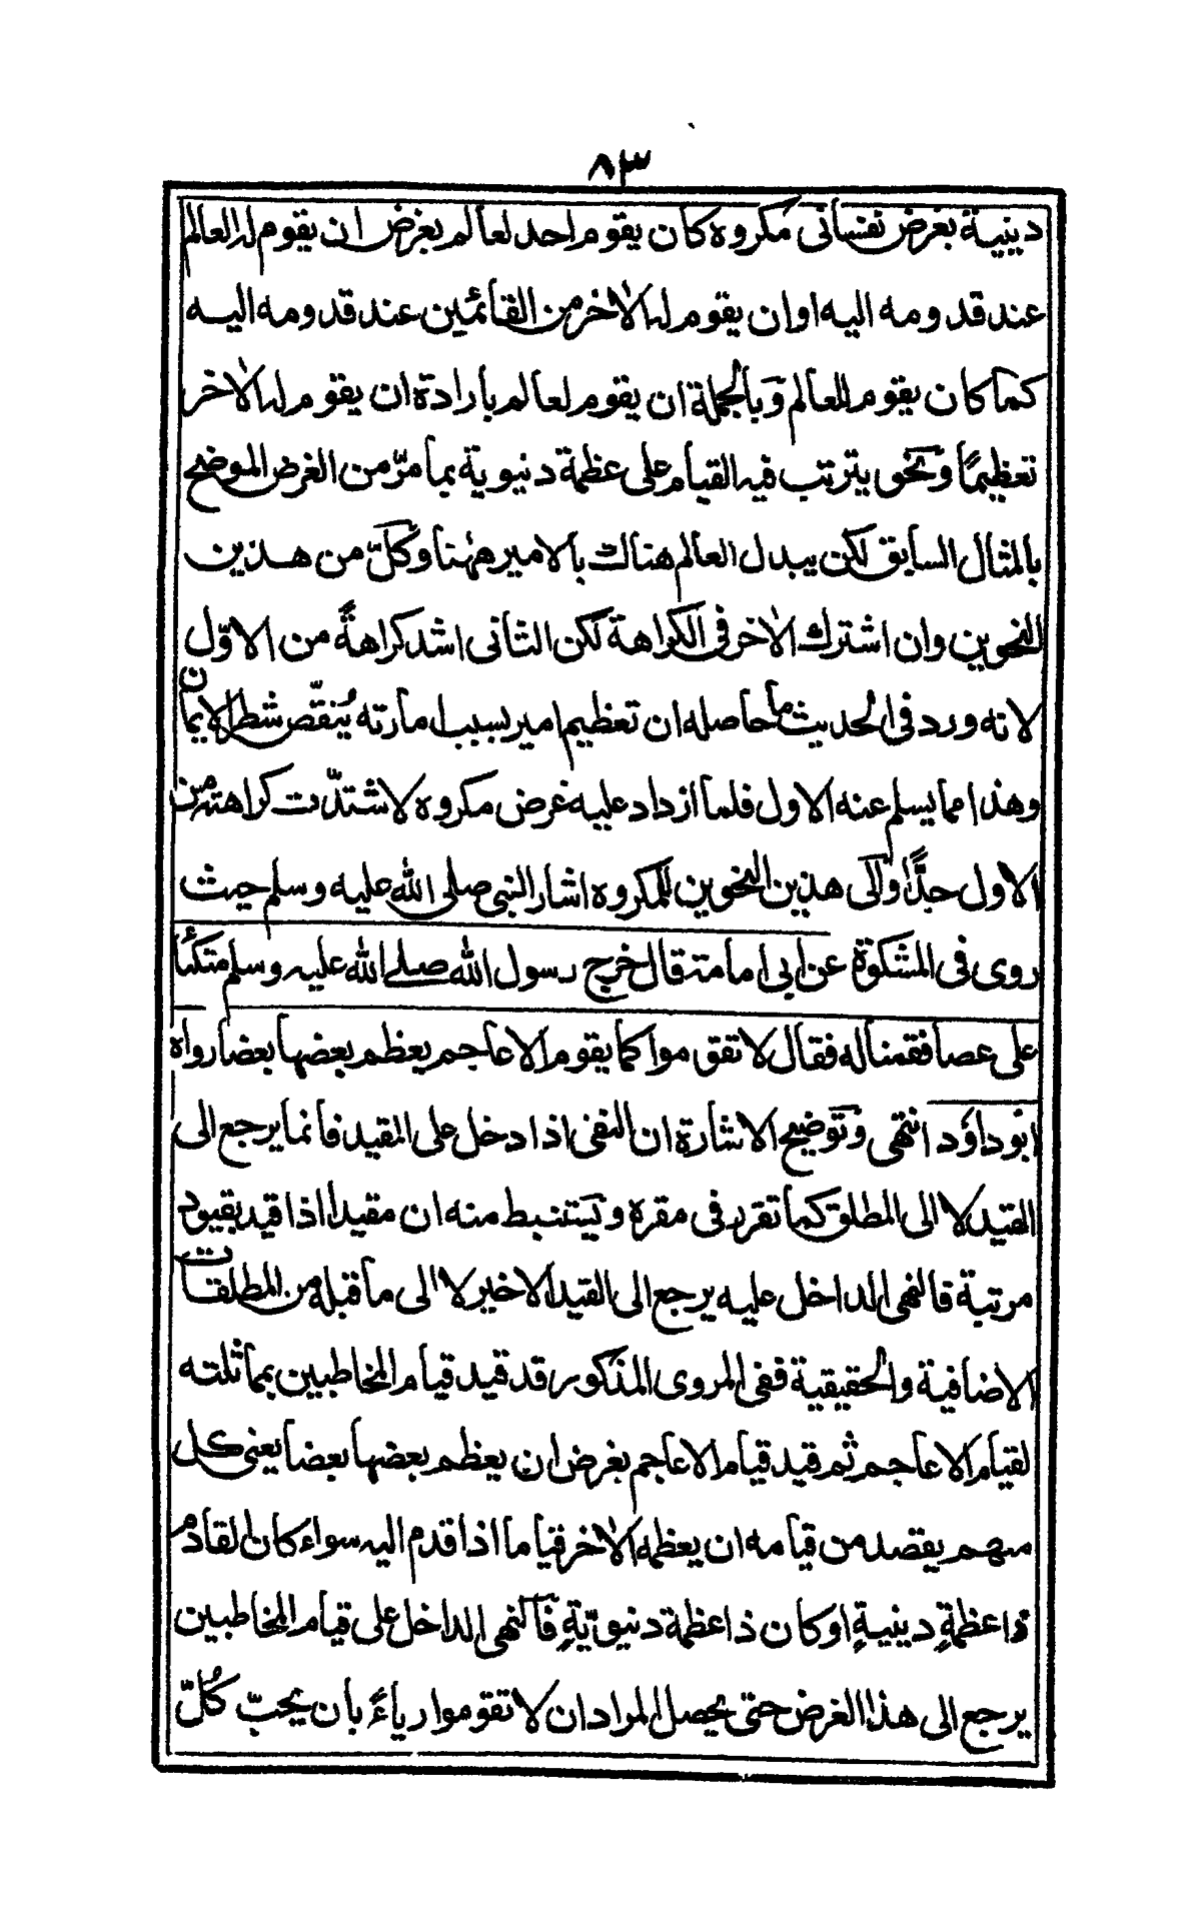 ٨٣
دينية بغرض نفسانى مكروه كان يقوم احد لعالم بغرض ان يقوم له العالم
عند قدومه اليه اوان يقوم له الاٰخر من القائمين عند قدومه اليه
كما كان يقوم للعالم وبالجملة ان يقوم لعالم بارادة ان يقوم له الاٰخر
تعظيمًا ونحو يترتب فيه القيام على عظمة دنيوية بما مرّ من الغرض الموضح
بالمثال السابق لكن يبدل العالم هناك بالامير ههنا وكلّ من هذين
النحوين وان اشترك الاٰخر فى الكراهة لكن الثانى اشد كراهةً من الاوّل
لانه ورد فى الحديث ما حاصله ان تعظيم امير بسبب امارته يُنقّص شطر الايمان
وهذا مما يسلم عنه الاول فلما ازداد عليه غرض مكروه لاشتدّت كراهته من
الاول جدًّا والى هذين النحوين للمكروه اشار النبى صلى الله عليه وسلم حيث
روى فى المشكوة عن ابى امامة قال خرج رسول الله صلے الله عليه وسلم متكئا
على عصا فقمنا له فقال لا تقوموا كما يقوم الاعاجم يعظم بعضها بعضا رواه
ابو داؤد انتهى وتوضيح الاشارة ان النفى اذا دخل على المقيد فانما يرجع الى
القيد لا الى المطلق كما تقرر فى مقره ويستنبط منه ان مقيدا اذا قيد بقيود
مرتبة فالنهى الداخل عليه يرجع الى القيد الاخير لا الى ما قبله من المطلقات
الاضافية والحقيقية ففى المروى المذكور قد قيد قيام المخاطبين بمماثلته
لقيام الاعاجم ثم قيد قيام الاعاجم بغرض ان يعظم بعضها بعضا يعنى كل
منهم يقصد من قيامه ان يعظمه الاٰخر قياما اذا قدم اليه سواء كان القادم
ذا عظمةٍ دينيةٍ او كان ذا عظمة دنيويّةٍ فالنهى الداخل على قيام المخاطبين
يرجع الى هذا الغرض حتى يحصل المراد ان لا تقوموا رياءً بان يحبّ كُلّ